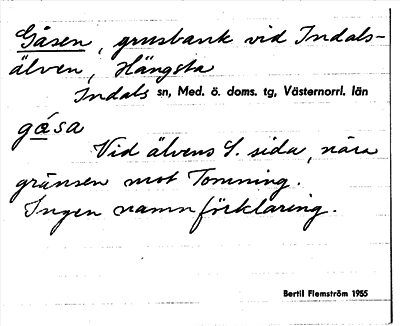 Gåsen, grusbank vid Indals-
älven, Hängsta
Indals sn, Med. ö. doms. tg, Västernorrl. län
gåsa
Vid älvens S. sida, nära
gränsen mot Tomming.
Ingen namnförklaring.
Bertil Flemström 1955